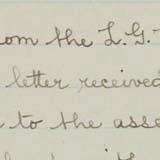 om the L.G.
letter received
to the asse